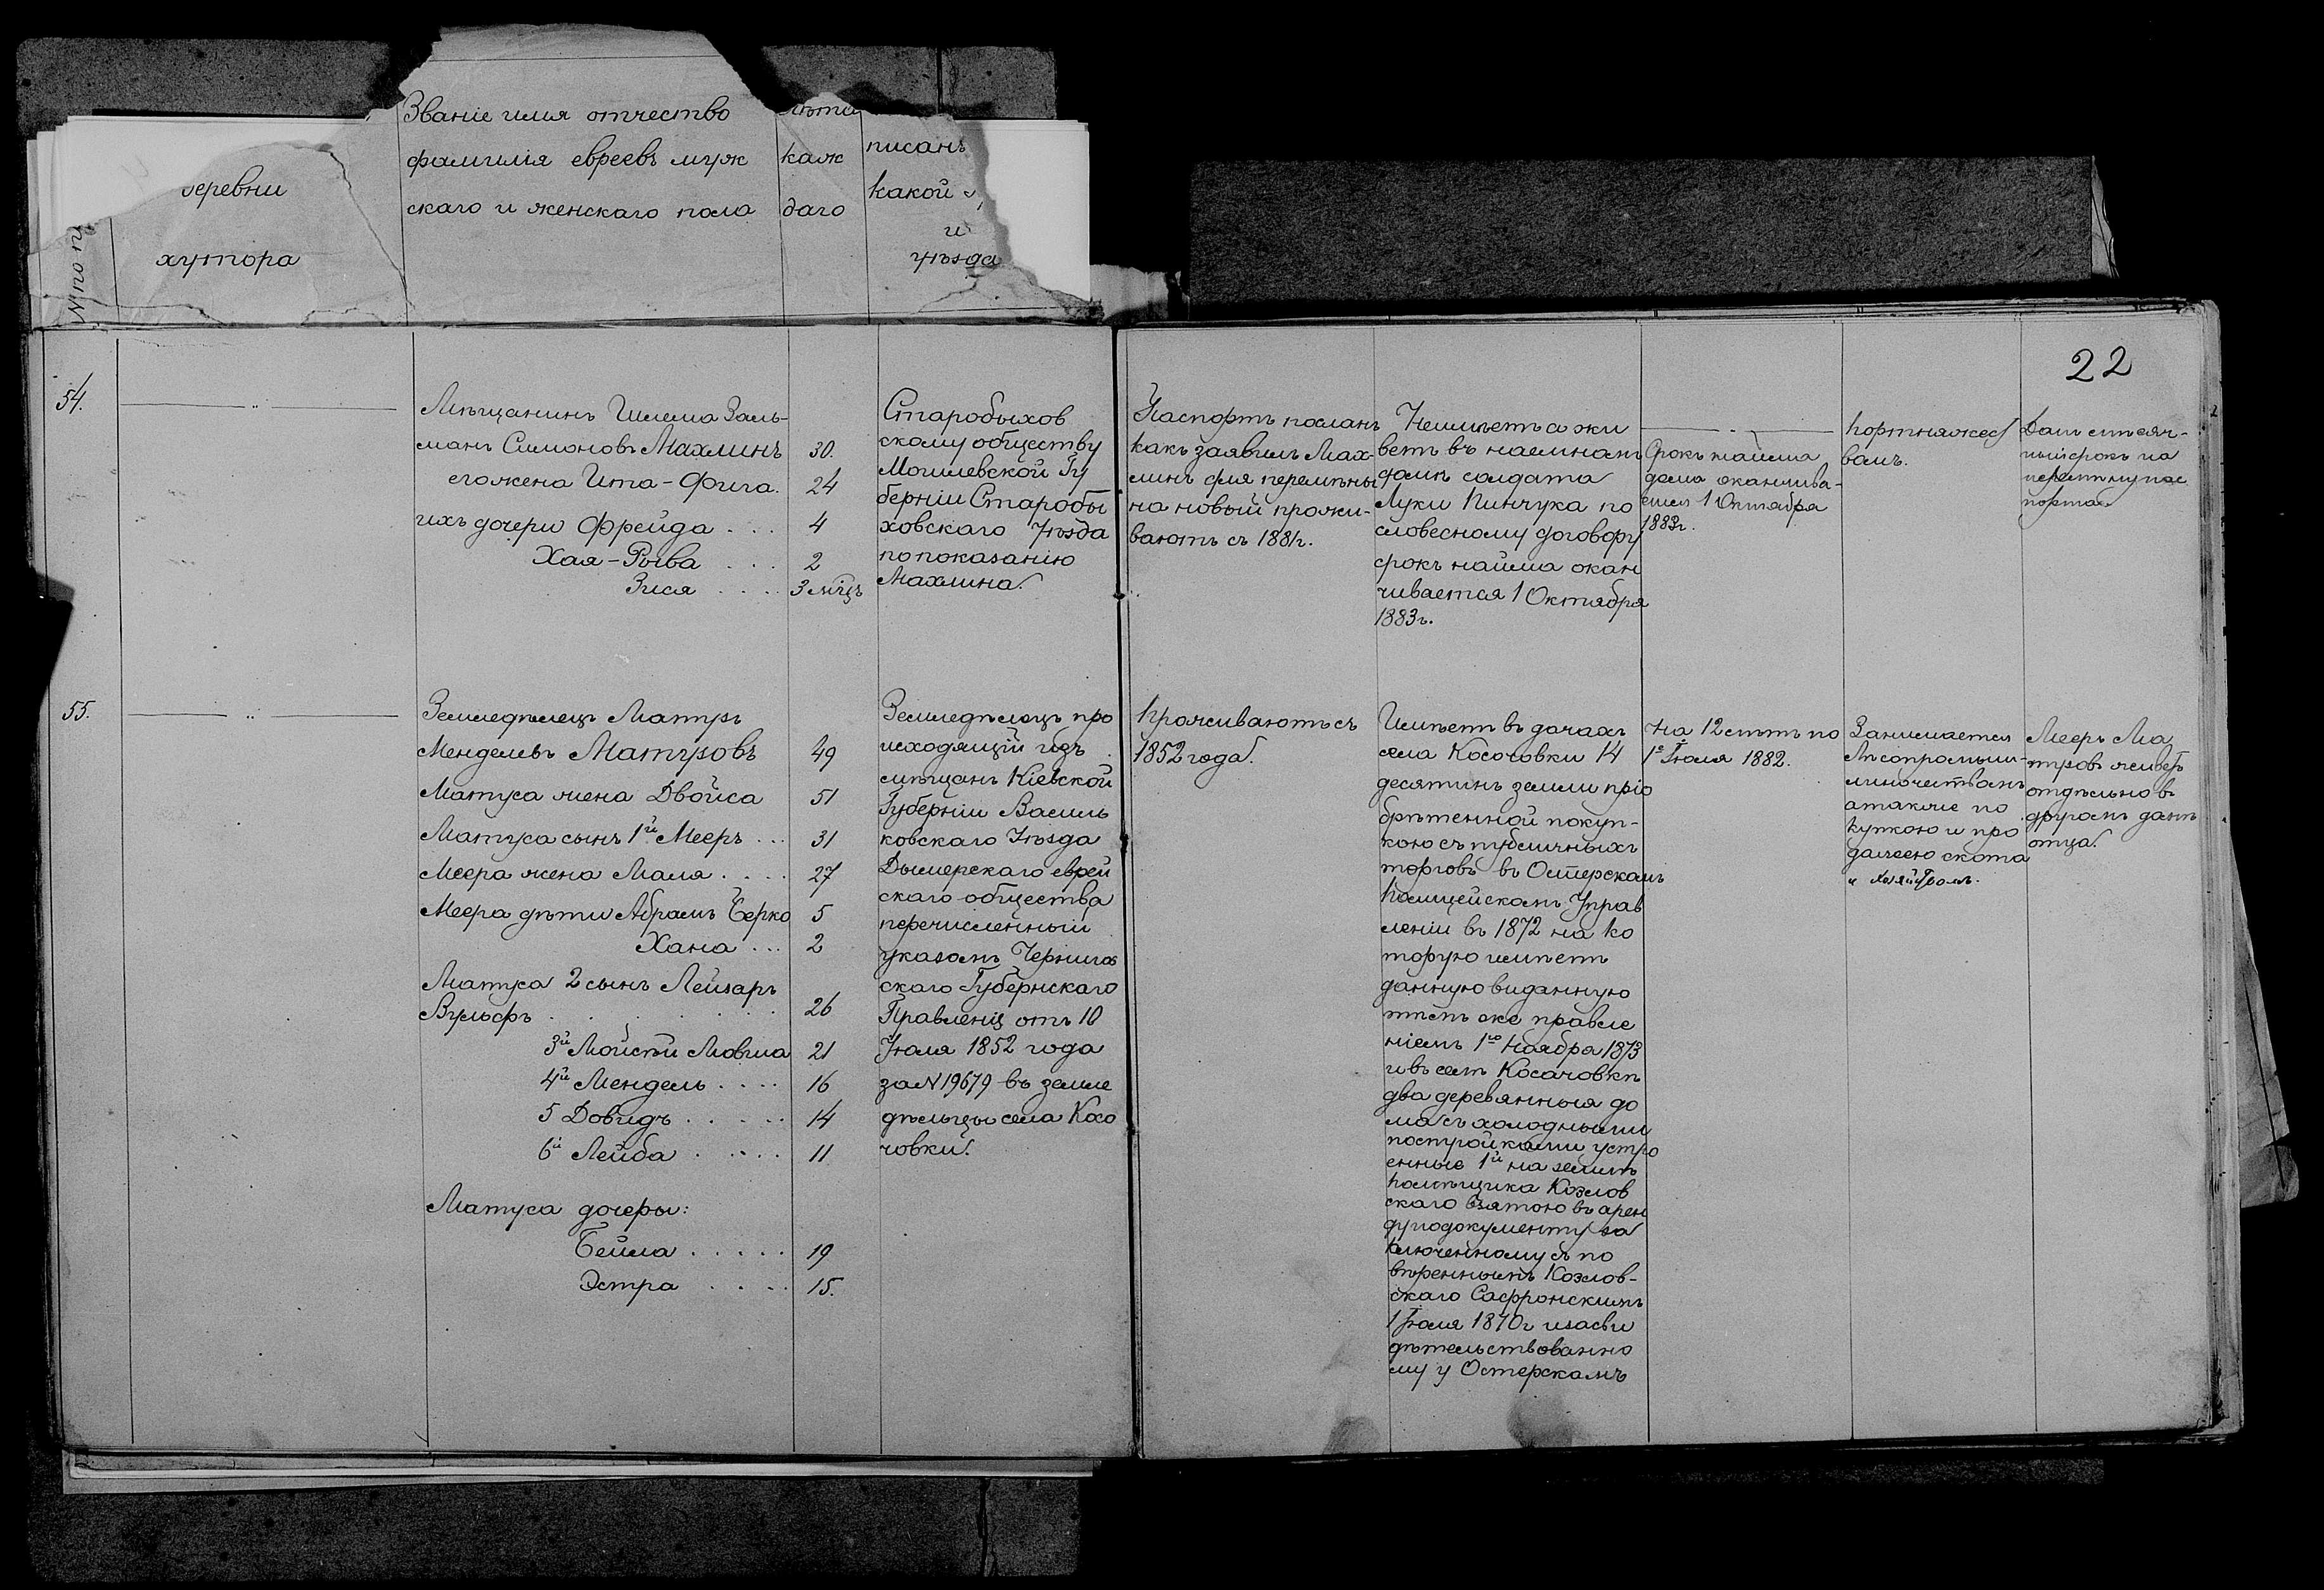 22
деревни
хутора
Званіе имя отчество
фамилія евреевъ муж
скаго и женскаго пола
Лѣта
каж
даго
писанъ
какой
и
уѣзда
54.
Мѣщанинъ Шлема Заль-
манъ Симоновъ Махлинъ 30.
его жена Ита-Фига. 24
ихъ дочери Фрейда . . . 4
Хая-Рыва . . . 2
Зися . . . . 3 мѣць
Старобыхов
скому обществу
Могилевской Гу
берніи Старобы
ховскаго Уѣзда
по показанію
Махлина.
Паспортъ посланъ
какъ заявилъ Мах-
линъ для перемѣны
на новый прожи-
ваютъ съ 1881г.
Неимѣетъ а жи
ветъ въ наемномъ
домѣ солдата
Луки Пинчука по
словесному договору
срокъ найма окан
чивается 1 Октября
1883г.
Срокъ найма
дома оканчива-
ется 1 Октября
1883г.
Портняжест
вомъ.
Данъ мѣсяч-
ный срокъ на
перемѣну пас
порта
55.
Земледѣлецъ Матусъ
Менделевъ Матусовъ 49
Матуса жена Двойса 51
Матуса сынъ 1й Мееръ ... 31
Меера жена Маля . . . . 27
Меера дѣти Абрамъ Берко 5
Хана ... 2
Матуса 2 сынъ Лейзаръ
Вульфъ . . . . . . 26
3й Мойсѣй Мовша 21
4й Мендель . . . . 16
5 Довидъ . . . . . 14
6й Лейба . . . . . 11
Матуса дочеры:
Бейла . . . . . 19
Эстра . . . . 15.
Земледѣлецъ про
исходящій изъ
мѣщанъ Кіевской
Губерніи Василь
ковскаго Уѣзда
Дымерскаго еврей
скаго общества
перечисленный
указомъ Чернигов
скаго Губернскаго
Правленія отъ 10
Іюля 1852 года
за N 19679 въ земле
дѣльцы села Косо
човки.
Проживаютъ съ
1852 года.
Имѣетъ въ дачахъ
села Косочовки 14
десятинъ земли пріо
брѣтенной покуп-
кою съ публичныхъ
торговъ въ Остерскомъ
Полицейскомъ Управ
леніи въ 1872 на ко
торую имѣетъ
данную выданную
тѣмъ же правле
ніемъ 1го Ноября 1873
и въ селѣ Косачовкѣ
два деревянныя до
ма съ холодными
постройками устро
енные 1й на землѣ
помѣщика Козлов
скаго взятою въ арен
ду по документу за
ключенному съ по
вѣреннымъ Козлов-
скаго Сафронскимъ
1 Іюля 1870г и засви
дѣтельствованно
му у Остерскомъ
На 12 лѣтъ по
1е Іюля 1882.
Занимается
Лѣсопромыш-
а также по
купкою и про
дажею скота
Мееръ Ма
тусовъ живетъ
отдѣльно въ
другомъ домѣ
отца.